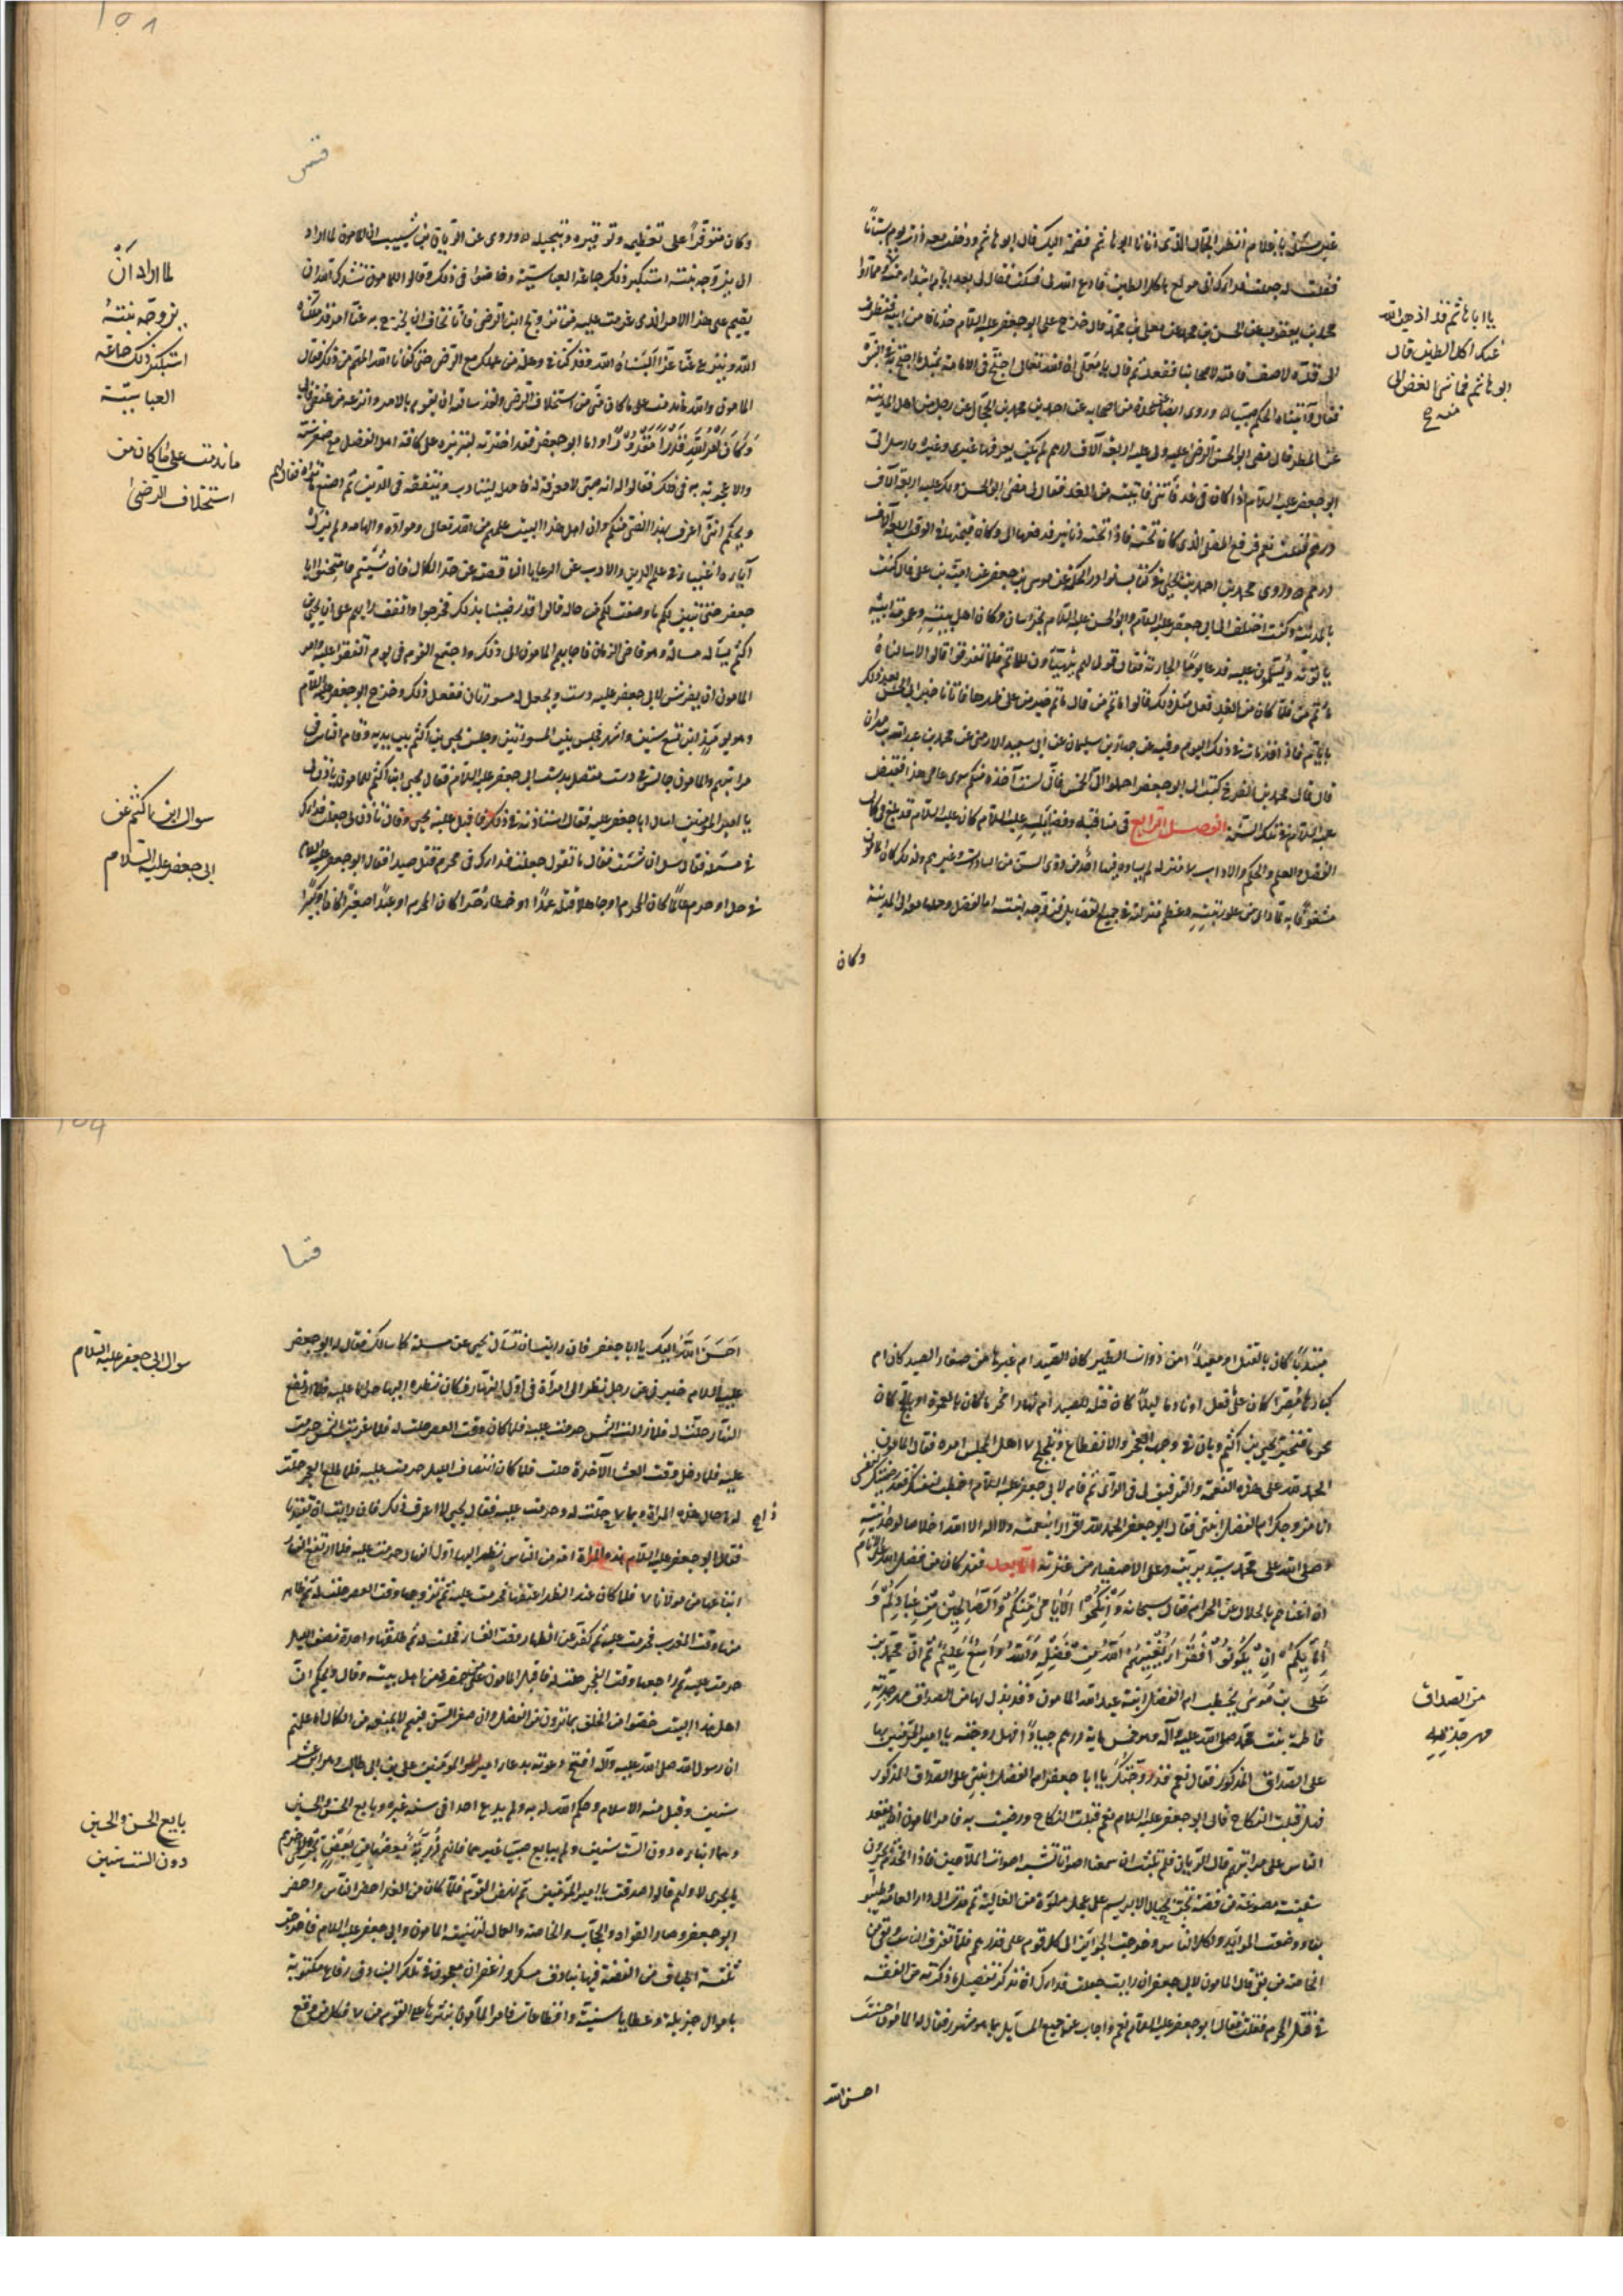 غير مسئلتي يا غلام انظر الجمال الذي اتانا ابو هاشم فضمه اليك قال ابو هاشم ودخلت معه ذات يوم بستانا
فقلت له جعلت فداك اني مولع باكل الطين فادع الله لي فسكت فقال لي بعد ايام ابتداء منه
محمد بن يعقوب عن الحسين بن محمد عن معلى بن محمد قال خرج علي ابو جعفر عليه السلام حدثان من ابيه فنظرت
الى قده لاصف قامته لاصحابنا فقعد ثم قال يا معلى ان الله تعالى احتج في الامامة بمثل ما احتج به في النبوة
فقال وآتيناه الحكم صبيا وروى ايضا عن عدة من اصحابه عن احمد بن محمد بن الحجال عن رجل من اهل المدينة
عن المطرفي قال مضى ابو الحسن الرضا عليه ولي عليه اربعة آلاف درهم لم يكن يعرفها غيري وغيره فارسل الي
ابو جعفر عليه السلام اذا كان في غد فأتني فاتيته من الغد فقال لي مضى ابو الحسن ولك عليه اربعة آلاف
درهم فقلت نعم فرفع المصلى الذي كان تحته فاذا تحته دنانير فدفعها الي وكان قيمتها في الوقت اربعة آلاف
درهم وروى محمد بن احمد بن يحيى في كتاب نوادر الحكمة عن موسى بن جعفر عن امية بن علي قال كنت
بالمدينة وكنت اختلف الى ابي جعفر عليه السلام وابو الحسن عليه السلام بخراسان وكان اهل بيته وعمومة ابيه
يأتونه ويسلمون عليه فدعا يوما الجارية فقال قولي لهم يتهيأون للمأتم فلما تفرقوا قالوا الا سألناه
مأتم من فلما كان من الغد فعل مثل ذلك فقالوا مأتم من قال مأتم خير من على ظهرها فاتانا خبر ابي الحسن بعد ذلك
بايام فاذا هو قد مات في ذلك اليوم وفيه عن حمدان بن سليمان عن ابي سعيد الارمني عن محمد بن عبد الله بن مهران
قال قال محمد بن الفرج كتب الي ابو جعفر احملوا الي الخمس فاني لست آخذه منكم سوى عامي هذا فقبض
عليه السلام في تلك السنة الفصل الرابع في مناقبه وفضايله عليه السلام كان عليه السلام قد بلغ في كمال
الفضل والعلم والحكم والاداب مع صغر سنه منزلة لم يساوه فيها احد من ذوي السن من السادات وغيرهم ولذلك كان المأمون
مشغوفا به لما راى من علو رتبته وعظم منزلته في جميع الفضايل فزوجه ابنته ام الفضل وحملها معه الى المدينة
وكان
يا ابا هاشم قد اذهب الله
عنك اكل الطين قال
ابو هاشم فما شئ ابغض الي
منه
وكان متوفرا على تعظيمه وتوقيره وتبجيله وروى عن الريان بن شبيب ان المأمون لما اراد
ان يزوجه ابنته استكبر ذلك جماعة العباسية وخاضوا في ذلك وقالوا للمأمون ننشدك الله ان
تقيم على هذا الامر الذي عزمت عليه من تزويج ابن الرضا فانا نخاف ان يخرج به عنا امر قد ملكناه
الله وينزع عنا عزا البسناه الله وقد كنا في وحلة من عملك مع الرضا حتى كفانا الله المهم من ذلك فقال
المأمون والله ما ندمت على ما كان مني من استخلاف الرضا ولقد سالته ان يقوم بالامر وانزعه من عنقي فابى
وَكَانَ اَمْرُ اللّهِ قَدَراً مَقْدُوراً واما ابو جعفر فقد اخترته لتبرزه على كافة اهل الفضل مع صغر سنه
والاعجوبة به في ذلك فقالوا له انه صبي لا معرفة له فامهل ليتادب ويتفقه في الدين ثم اصنع ما تراه فقال لهم
ويحكم انني اعرف بهذا الفتى منكم وان اهل هذا البيت علمهم من الله تعالى ومواده والهامه ولم يزل
آباؤه اغنياء في علم الدين والادب عن الرعايا الناقصة عن حد الكمال فان شئتم فامتحنوا ابا
جعفر حتى يتبين لكم ما وصفت لكم من حاله قالوا قد رضينا بذلك فخرجوا واتفق رايهم على ان يحيى بن
اكثم يسأله مسألة وهو قاضي الزمان فاجابهم المأمون الى ذلك واجتمع القوم في يوم اتفقوا عليه وامر
المأمون ان يفرش لابي جعفر عليه دست ويجعل له مسورتان ففعل ذلك وخرج ابو جعفر عليه السلام
وهو يومئذ ابن تسع سنين واشهر فجلس بين المسورتين وجلس يحيى بن اكثم بين يديه وقام الناس في
مراتبهم والمأمون جالس في دست متصل بدست ابي جعفر عليه السلام فقال يحيى ابن اكثم للمأمون يأذن لي
يا امير المؤمنين اسأل ابا جعفر عليه فقال استأذنه في ذلك فاقبل عليه يحيى وقال تأذن لي جعلت فداك
في مسئلة فقال سل ان شئت فقال ما تقول جعلت فداك في محرم قتل صيدا فقال ابو جعفر عليه السلام
في حل او حرم عالما كان المحرم او جاهلا قتله عمدا او خطأ حرا كان المحرم او عبدا صغيرا كان او كبيرا
لما اراد ان
يزوجه بنته
استكبر ذلك جماعة
العباسية
ما ندمت على ما كان من
استخلاف الرضى
سوال ابن اكثم عن
ابي جعفر عليه السلام
مبتدئا كان بالقتل ام معيدا من ذوات الطير كان الصيد ام غيرها من صغار الصيد كان ام
كبارها مصرا كان على فعل او نادما ليلا كان قتله للصيد ام نهارا محرما كان بالعمرة او بالحج كان
محرما فتحير يحيى بن اكثم وبان في وجهه العجز والانقطاع وتلجلج اهل المجلس امره فقال المأمون
الحمد لله على هذه النعمة والتوفيق لي في الراي ثم قال لابي جعفر عليه السلام اخطب لنفسك فقد رضيتك لنفسي
انا مزوجك ام الفضل ابنتي فقال ابو جعفر الحمد لله اقرارا بنعمته ولا اله الا الله اخلاصا لوحدانيته
وصلى الله على محمد سيد بريته وعلى الاصفياء من عترته اما بعد فقد كان من فضل الله على الانام
ان اغناهم بالحلال عن الحرام فقال سبحانه وَاَنْكِحُوا الْاَيَامَى مِنْكُمْ وَالصَّالِحِينَ مِنْ عِبَادِكُمْ وَ
اِمَائِكُمْ اِنْ يَكُونُوا فُقَرَاءَ يُغْنِهِمُ اللّهُ مِنْ فَضْلِهِ وَاللّهُ وَاسِعٌ عَلِيمٌ ثم ان محمد بن
علي بن موسى يخطب ام الفضل ابنة عبد الله المأمون وقد بذل لها من الصداق مهر جدته
فاطمة بنت محمد صلى الله عليه وآله وهو خمس ماية درهم جيادا فهل زوجتنيه يا امير المؤمنين بها
على الصداق المذكور فقال نعم قد زوجتك يا ابا جعفر ام الفضل ابنتي على الصداق المذكور
فهل قبلت النكاح قال ابو جعفر عليه السلام نعم قبلت النكاح ورضيت به فامر المأمون ان يقعد
الناس على مراتبهم قال الريان فلم نلبث ان سمعنا اصواتا تشبه اصوات الملاحين فاذا الخدم يجرون
سفينة مصنوعة من فضة تجر بحبال الابريسم على عجل مملوة من الغالية ثم مدت الى دار العامة فطيبوا
بها ووضعت الموائد واكل الناس وخرجت الجوائز الى كل قوم على قدرهم فلما تفرق الناس وبقي من
الخاصة من بقي قال المأمون لابي جعفر ان رايت جعلت فداك ان تذكر تفصيل ما ذكرته من الفقه
في قتل المحرم فقلت فقال ابو جعفر عليه السلام نعم واجاب عن جميع المسايل بما هو مشهور فقال له المأمون احسنت
احسن الله
من الصداق
مهر جدته
احَسَنَ اللّهُ اليك يا ابا جعفر فان رايت ان تسأل يحيى عن مسئلة كما سالك فقال له ابو جعفر
عليه السلام خبرني عن رجل نظر الى امرأة في اول النهار فكان نظره اليها حراما عليه فلما ارتفع
النهار حلت له فلما زالت الشمس حرمت عليه فلما كان وقت العصر حلت له فلما غربت الشمس حرمت
عليه فلما دخل وقت العشاء الآخرة حلت فلما كان انتصاف الليل حرمت عليه فلما طلع الفجر حلت
له ما حال هذه المرأة وبما حلت له وحرمت عليه فقال يحيى لا اعرف ذلك فان رايت ان تفيدنا
فقال ابو جعفر عليه السلام هذه المرأة امة من الناس نظر اليها اول النهار حرمت عليه فلما ارتفع النهار
ابتاعها من مولاها فلما كان عند الظهر اعتقها فحرمت عليه ثم تزوجها وقت العصر حلت له ثم ظاهر
منها وقت المغرب فحرمت عليه ثم كفر عن الظهار وقت العشاء فحلت له ثم طلقها واحدة نصف الليل
حرمت عليه ثم راجعها وقت الفجر حلت له فاقبل المأمون على من حضر من اهل بيته وقال ويحكم ان
اهل هذا البيت خصوا من الخلق بما ترون من الفضل وان صغر السن فيهم لا يمنعهم من الكمال اما علمتم
ان رسول الله صلى الله عليه وآله افتتح دعوته بدعاء امير المؤمنين علي بن ابي طالب وهو ابن عشر
سنين وقبل منه الاسلام وحكم الله له به ولم يدع احدا في سنه غيره وبايع الحسن والحسين
وهما ابناه دون الست سنين ولم يبايع صبيا غيرهما فانهم ذُرِّيَّةً بَعْضُهَا مِنْ بَعْضٍ يجري لاخرهم
ما يجري لاولهم قالوا صدقت يا امير المؤمنين ثم نهض القوم فلما كان من الغد احضر الناس واحضر
ابو جعفر وصار القواد والحجاب والخاصة والعمال لتهنية المأمون وابي جعفر عليه السلام فاخرجت
ثلثة اطباق من الفضة فيها بنادق مسك وزعفران معجون في تلك البنادق رقاع مكتوبة
باموال جزيلة وعطايا سنية واقطاعات فامر المأمون بنثرها على القوم من فكل من وقع
سوال ابي جعفر عليه السلام
بايع الحسن والحسين
دون الست سنين